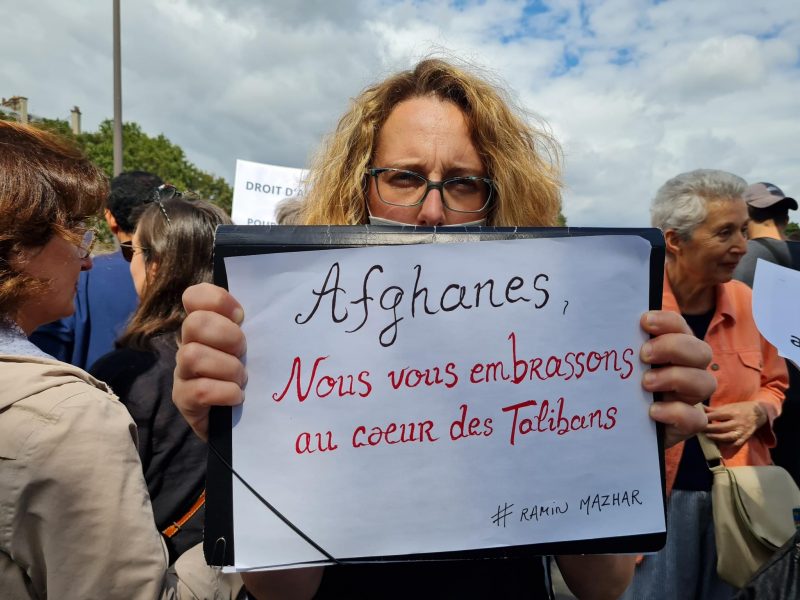 DROIT D'A
POUR
Afghanes,
Nous vous embrassons
au coeur des Talibans
# RAMIN MAZHAR